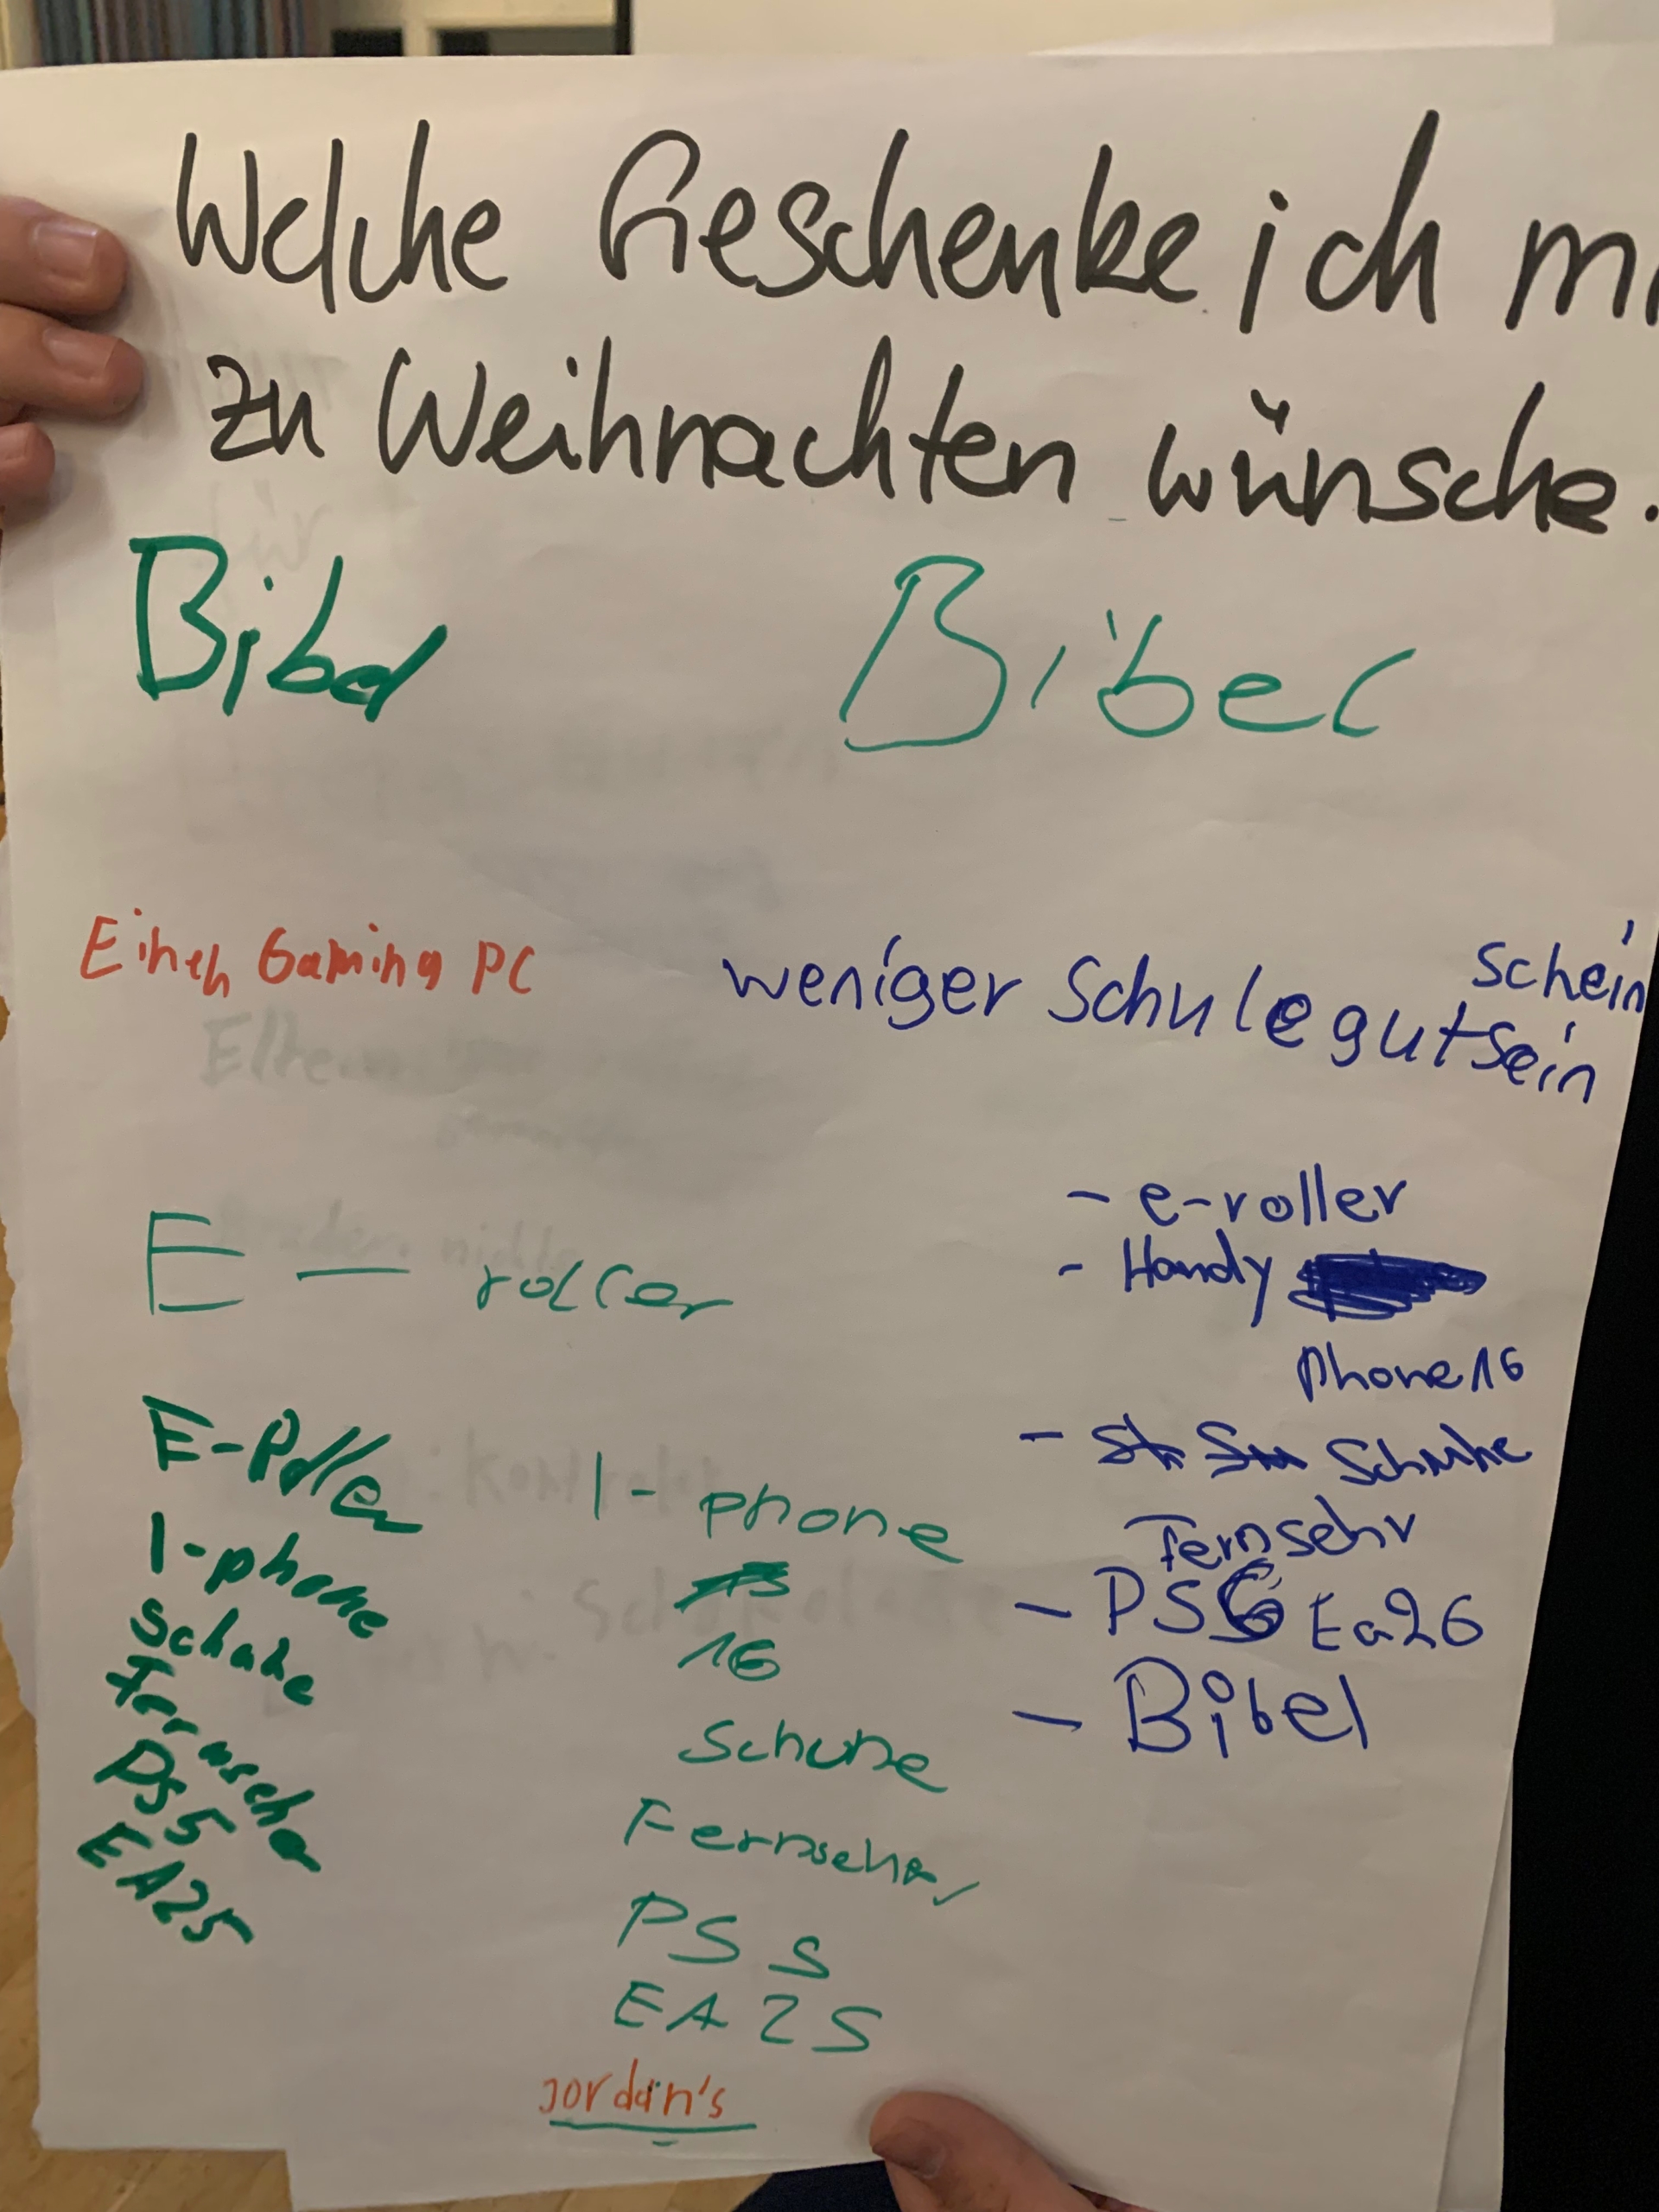 Welche Geschenke ich mi
zu Weihnachten wünsche.
Bibel
Bibel
Einen Gaming PC
weniger Schule gutsein
schein
E - roller
E-Roller
I-phone
Schuhe
Fernseher
PS5
EA25
I - phone
16
Schuhe
Fernseher
PS 5
EA 25
jordan's
- e-roller
- Handy
Phone 16
- Schuhe
Fernsehr
- PS Ea26
- Bibel